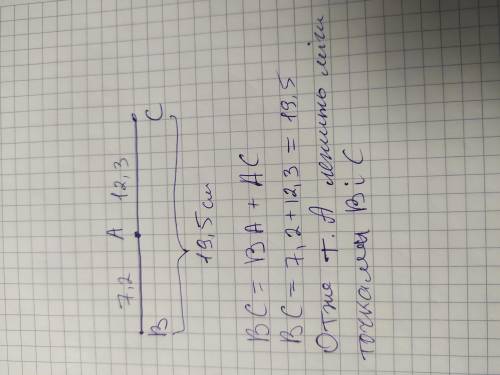 7,2 A 12,3
B C
19,5 см
BC = BA + AC
BC = 7,2 + 12,3 = 19,5
Отже т. A лежить між
точками B і C